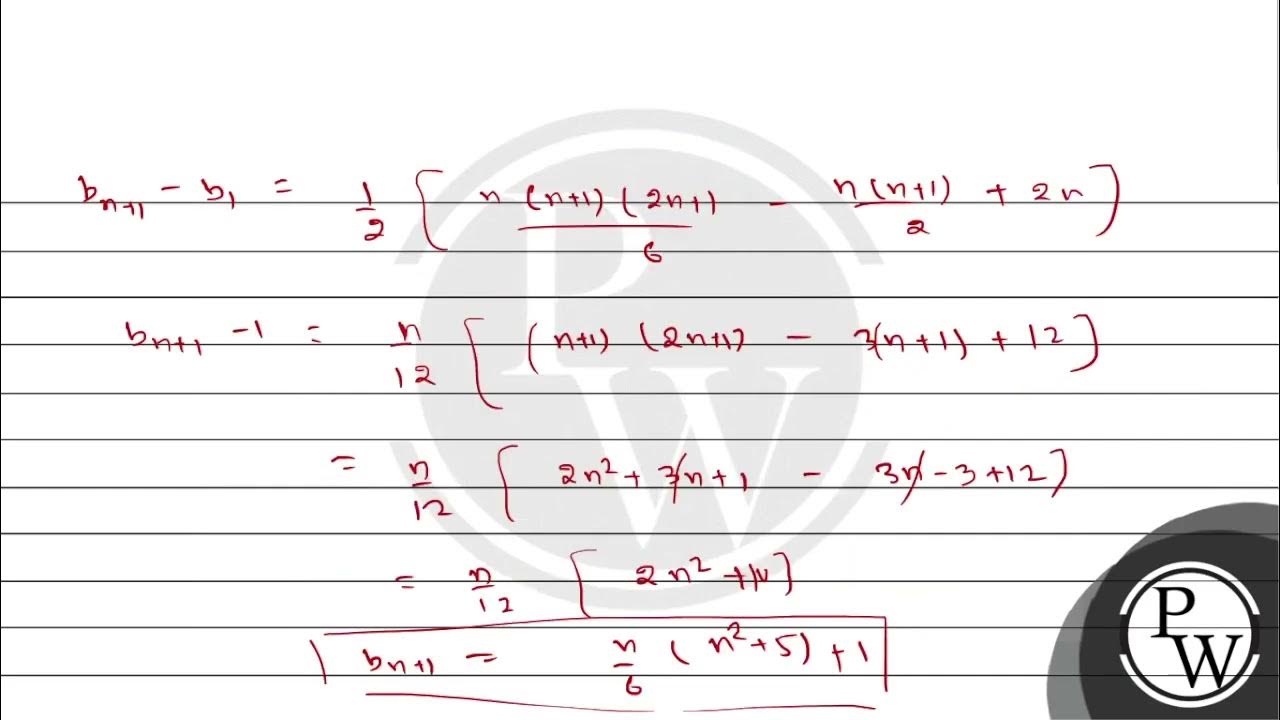 b_{n+1} - b_1 = 1/2 [ n (n+1) (2n+1) / 6 - n(n+1) / 2 + 2n ]
b_{n+1} - 1 = n/12 [ (n+1) (2n+1) - 3(n+1) + 12 ]
= n/12 [ 2n² + 3n + 1 - 3n - 3 + 12 ]
= n/12 [ 2n² + 10 ]
b_{n+1} = n/6 ( n² + 5 ) + 1
PW
PW